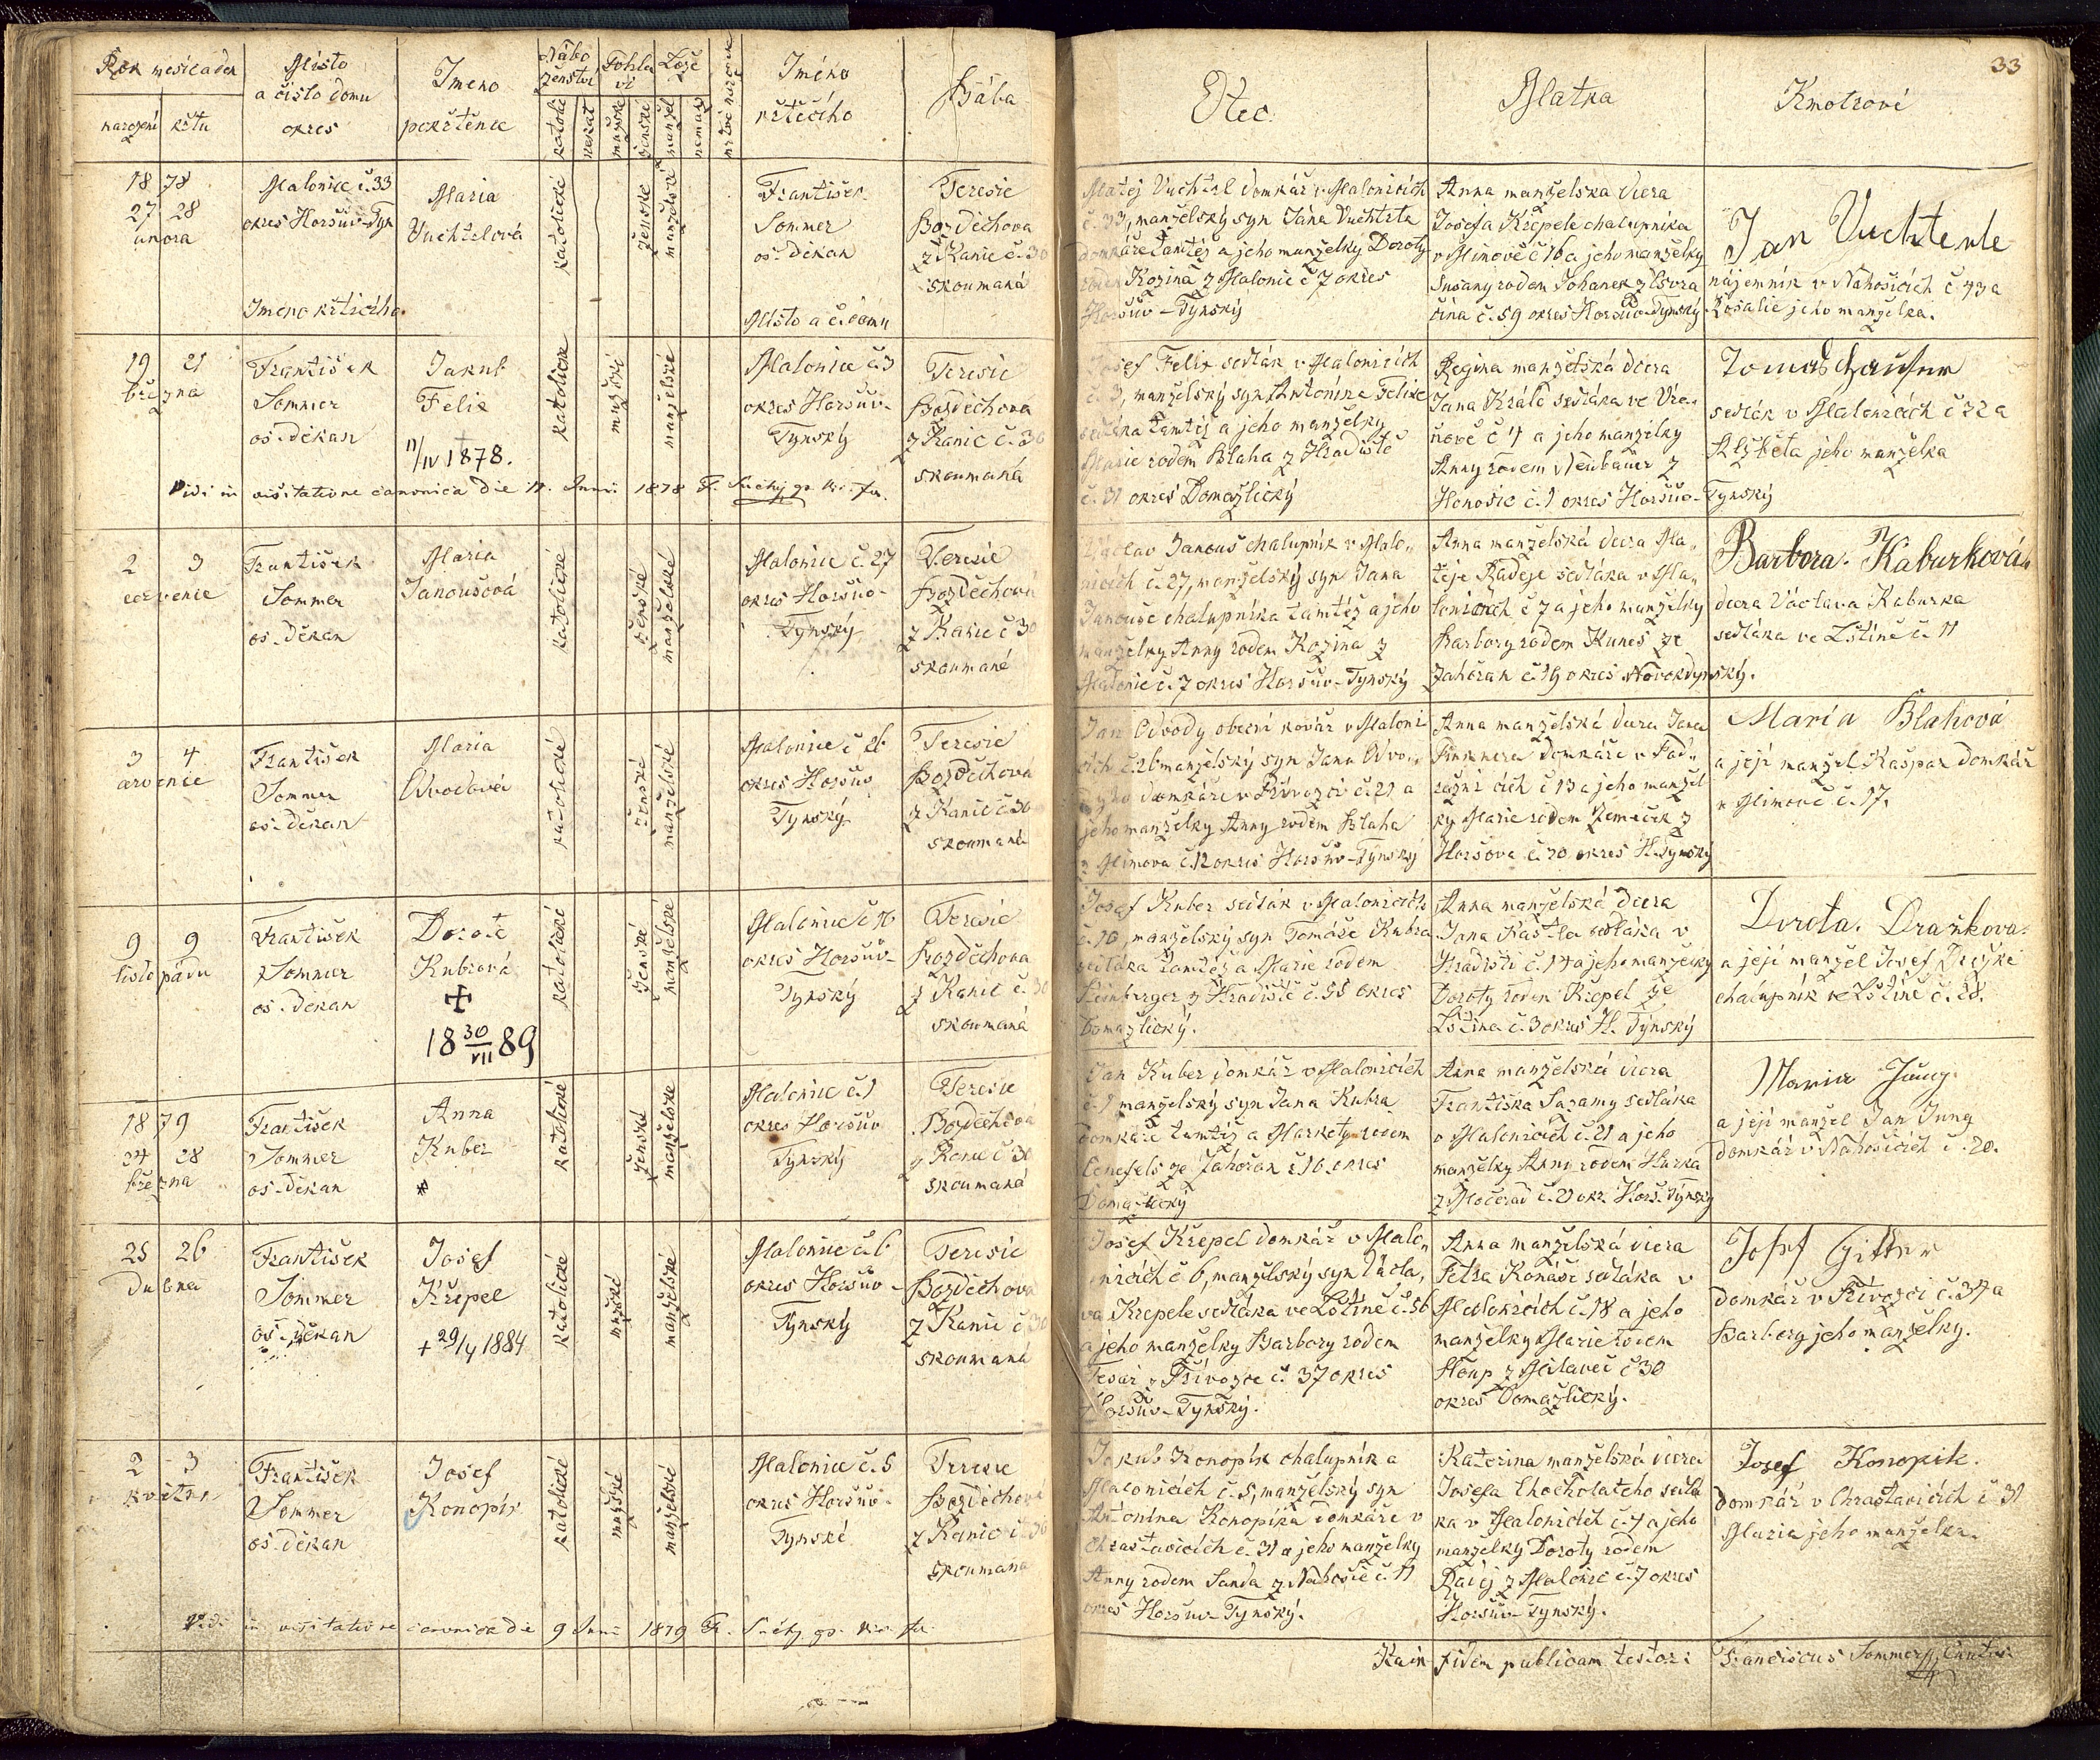 33
Rok měsíc a den
narození křtu
Místo
a číslo domu
okres
Jmeno
pokřtěnce
Nábo
ženství
katolic
nekat
Pohla
ví
mužské
ženské
Lože
manžel
neman
mrtvě narozené
Jméno
křtícího
Bába
Otec
Matka
Kmotrové
1878
27 28
února
Malonice č. 33
okres Horšův-Týn
Jmeno křtícího
Maria
Vuchtelová
katolické
ženské
manželské
František
Sommer
os. děkan
Místo a č. domu
Teresie
Bozděchova
z Kanic č. 30
skoumaná
Matěj Vuchtrl domkář v Malonicích
č. 33, manželský syn Jána Vuchtrla
domkáře tamtéž a jeho manželky Doroty
rodem Kozina z Malonic č 7 okres
Horšův-Týnský
Anna manželska dcera
Josefa Křepele chalupníka
v Mimově č 16 a jeho manželky
Susany rodem Johanek z
čína č. 59 okres Horšův-Týnský
Jan Vuchterle
nájemník v Nahošicích č. 43 a
Rosalie jeho manželka.
19 21
března
František
Sommer
os. děkan
Jakub
Felix
† 11/IV 1878.
katolické
mužské
manželské
Malonice č. 3
okres Horšův-
Týnský
Teresie
Bozděchova
z Kanic č. 30
skoumaná
Josef Felix sedlák v Malonicích
č. 3, manželský syn Antonína Felixe
sedláka tamtéž a jeho manželky
Marie rodem Blaha z Hradiště
č. 31 okres Domažlický
Regina manželská dcera
Jana Krále sedláka ve
č 4 a jeho manželky
Anny rodem Neubauer z
č. 1 okres Horšův-Týnský
Tomas
sedlák v Malonicích č 32 a
Alžběta jeho manželka
Vidi in visitatione canonica die 11. Junii 1878 F. Suchý
2 3
července
František
Sommer
os. Děkan
Maria
Janoušová
katolické
ženské
manželské
Malonice č. 27
okres Horšův-
Týnský
Teresie
Bozděchová
z Kanic č 30
skoumaná
Václav Janouš chalupník v Malo„
nicích č. 27, manželský syn Jana
Janouše chalupníka tamtéž a jeho
manželky Anny rodem Kozina z
Malonic č. 7 okres Horšův-Týnský
Anna manželská dcera Ma„
těje Radeje sedláka v Ma„
lonicích č 7 a jeho manželky
Barbory rodem Kuneš ze
Zahořan č. 19 okres Novokdynský.
Barbora Kaburková
dcera Václava Kaburka
sedláka ve Lštíně č. 11
3 4
července
František
Sommer
os. děkan
Maria
katolické
ženské
manželské
Malonice č 26
okres Horšův
Týnský
Teresie
Bozděchová
z Kanic č 30
skoumaná
Jan Odvody obecní kovář v Maloni
cích č. 26 manželský syn Jana Odvo„
dyho domkáře v Přívozci č. 21 a
jeho manželky Anny rodem Blaha
z Mimova č. 12 okres Horšův-Týnský
Anna manželská dcera Jana
domkáře v
č 13 a jeho manžel
ky Marie rodem Němeček z
Horšova č. 20 okres H. Týnský
Maria Blahová
a její manžel Kašpar domkář
v Mimově č. 17.
9 9
listopadu
František
Sommer
os. Děkan
Dorota
Kubrová
✠
18 30/VII 89
katolické
ženské
manželské
Malonice č 10
okres Horšův-
Týnský
Teresie
Bozděchova
z Kanic č. 30
skoumaná
Josef Kuber sedlák v Malonicích
č. 10, manželský syn Tomáše Kubra
sedláka tamtéž a Marie rodem
Steinberger z Hradiště č. 55 okres
Domažlický.
Anna manželská dcera
Jana sedláka v
Hradišti č. 14 a jeho manželky
Doroty rodem Křepel ze
Lštína č. 3 okres H. Týnský
Dorota. Draxkova.
a její manžel Josef
chalupník ve Lštíně č. 28.
1879
24 28
března
František
Sommer
os. děkan
Anna
Kuber
*
katolické
ženské
manželské
Malonice č. 1
okres Horšův
Týnský
Teresie
Bozděchova
z Kanic č 30
skoumaná
Jan Kuber domkář v Malonicích
č. 1 manželský syn Jana Kubra
domkáře tamtéž a Markety rodem
ze Zahořan č 16 okres
Domažlický
Anna manželská dcera
Františka Sazamy sedláka
v Malonicích č. 21 a jeho
manželky Anny rodem Hurka
z Močerad č. 21 okr. Horš. Týnský
Maria Jung.
a její manžel Jan Jung
domkář v Nahošicích č. 20.
25 26
Dubna
František
Sommer
os. děkan
Josef
Křepel
+ 29/V 1884
katolické
mužské
manželské
Malonice č. 6
okres Horšův-
Týnský
Teresie
Bozděchova
z Kanic č 30
skoumaná
Josef Křepel domkář v Malo„
nicích č 6, manželský syn Václa„
va Krepele sedláka ve Lštíně č. 56
a jeho manželky Barbory rodem
Tesař z Přívozce č. 37 okres
Horšův-Týnský.
Anna manželská dcera
Petra Konáše sedláka v
Malonicích č. 18 a jeho
manželky Marie rodem
z Milaveč č 30
okres Domažlický.
Josef
domkář v Přívozci č. 37 a
Barbory jeho manželky.
2 3
května
František
Sommer
os. děkan
Josef
Konopík
katolické
mužské
manželské
Malonice č. 5
okres Horšův-
Týnské
Teresie
Bozděchova
z Kanic č. 30
skoumaná
Jakub Konopík chalupník a
Malonicích č. 5, manželský syn
Antonína Konopíka domkáře v
Chrastavicích č. 31 a jeho manželky
Anny rodem Sanda z Nahošic č. 11
okres Horšův-Týnský.
Katerina manželská dcera
Josefa Chocholatého sedlá
ka v Malonicích č. 4 a jeho
manželky Doroty rodem
Radej z Malonic č. 7 okres
Horšův-Týnský.
Josef Konopik.
domkář v Chrastavicích č 31
Maria jeho manželka.
Vidi in visitatione canonica die 9 Junii 1879 F. Suchý
fidem publicam testor: Franciscus Sommer